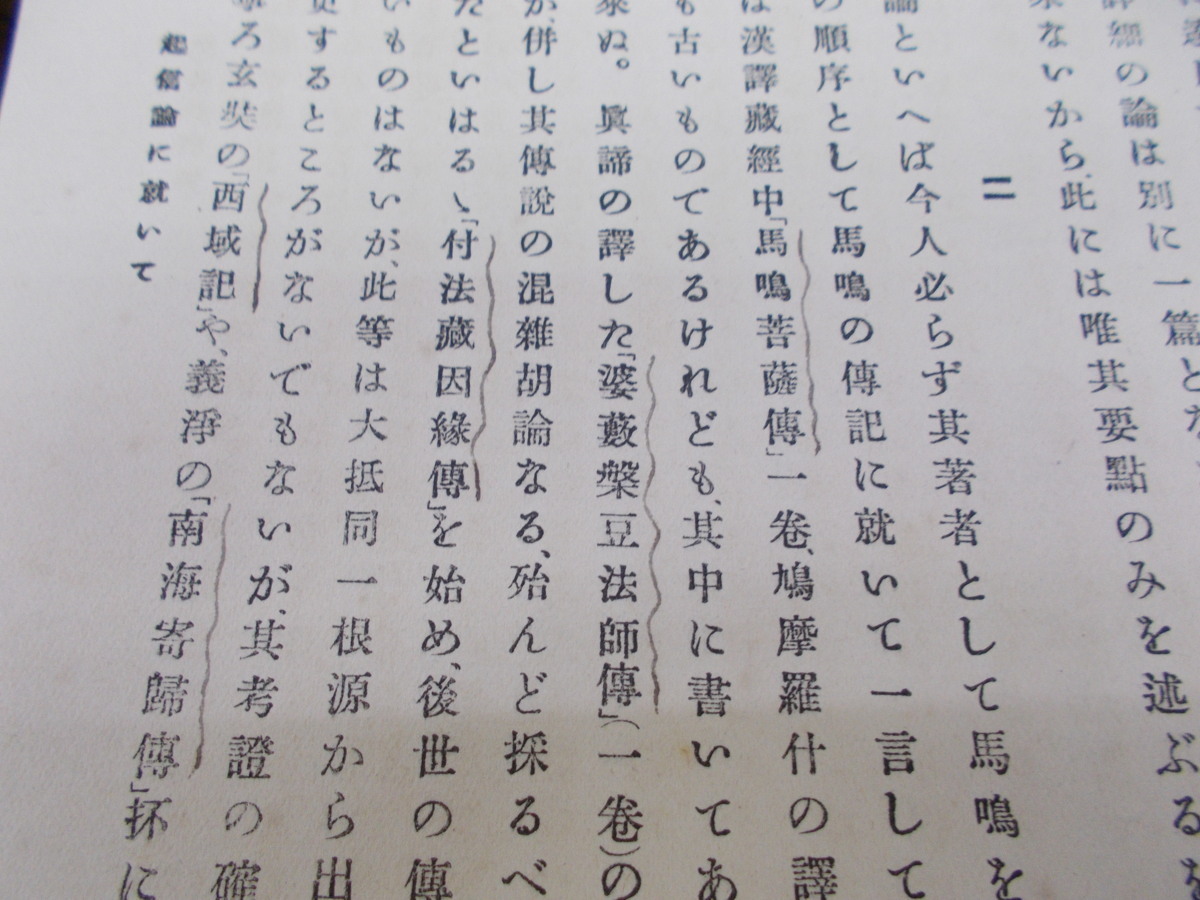 篇とな
詳細の論は別に一述ぶるを
來ないから、此には唯其要點のみを
二
論といへば今人必らず其著者として馬鳴を
の順序として馬鳴の傳記に就いて一言して
は漢譯藏經中「馬鳴菩薩傳」一卷、鳩摩羅什の譯
も古いものてあるけれども、其中に書いてあ
來ぬ。眞諦の譯した「婆藪槃豆法師傳」(一卷)の
が、併し其傳說の混雜胡論なる、殆んど採るべ
たといはるゝ「付法藏因緣傳」を始め、後世の傳
いものはないが、此等は大抵同一根源から出
するところがないでもないが、其考證の確
ろ玄奘の「西域記」や、義淨の「南海寄歸傳」抔に
起信論に就いて